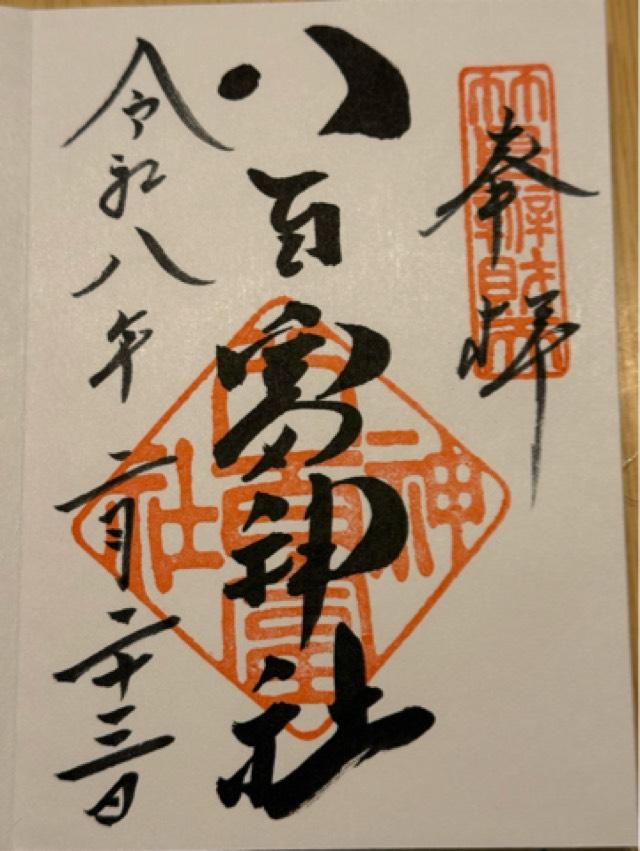 奉拝
竹島辨財天
八百富神社
八百富神社
令和八年二月二十三日